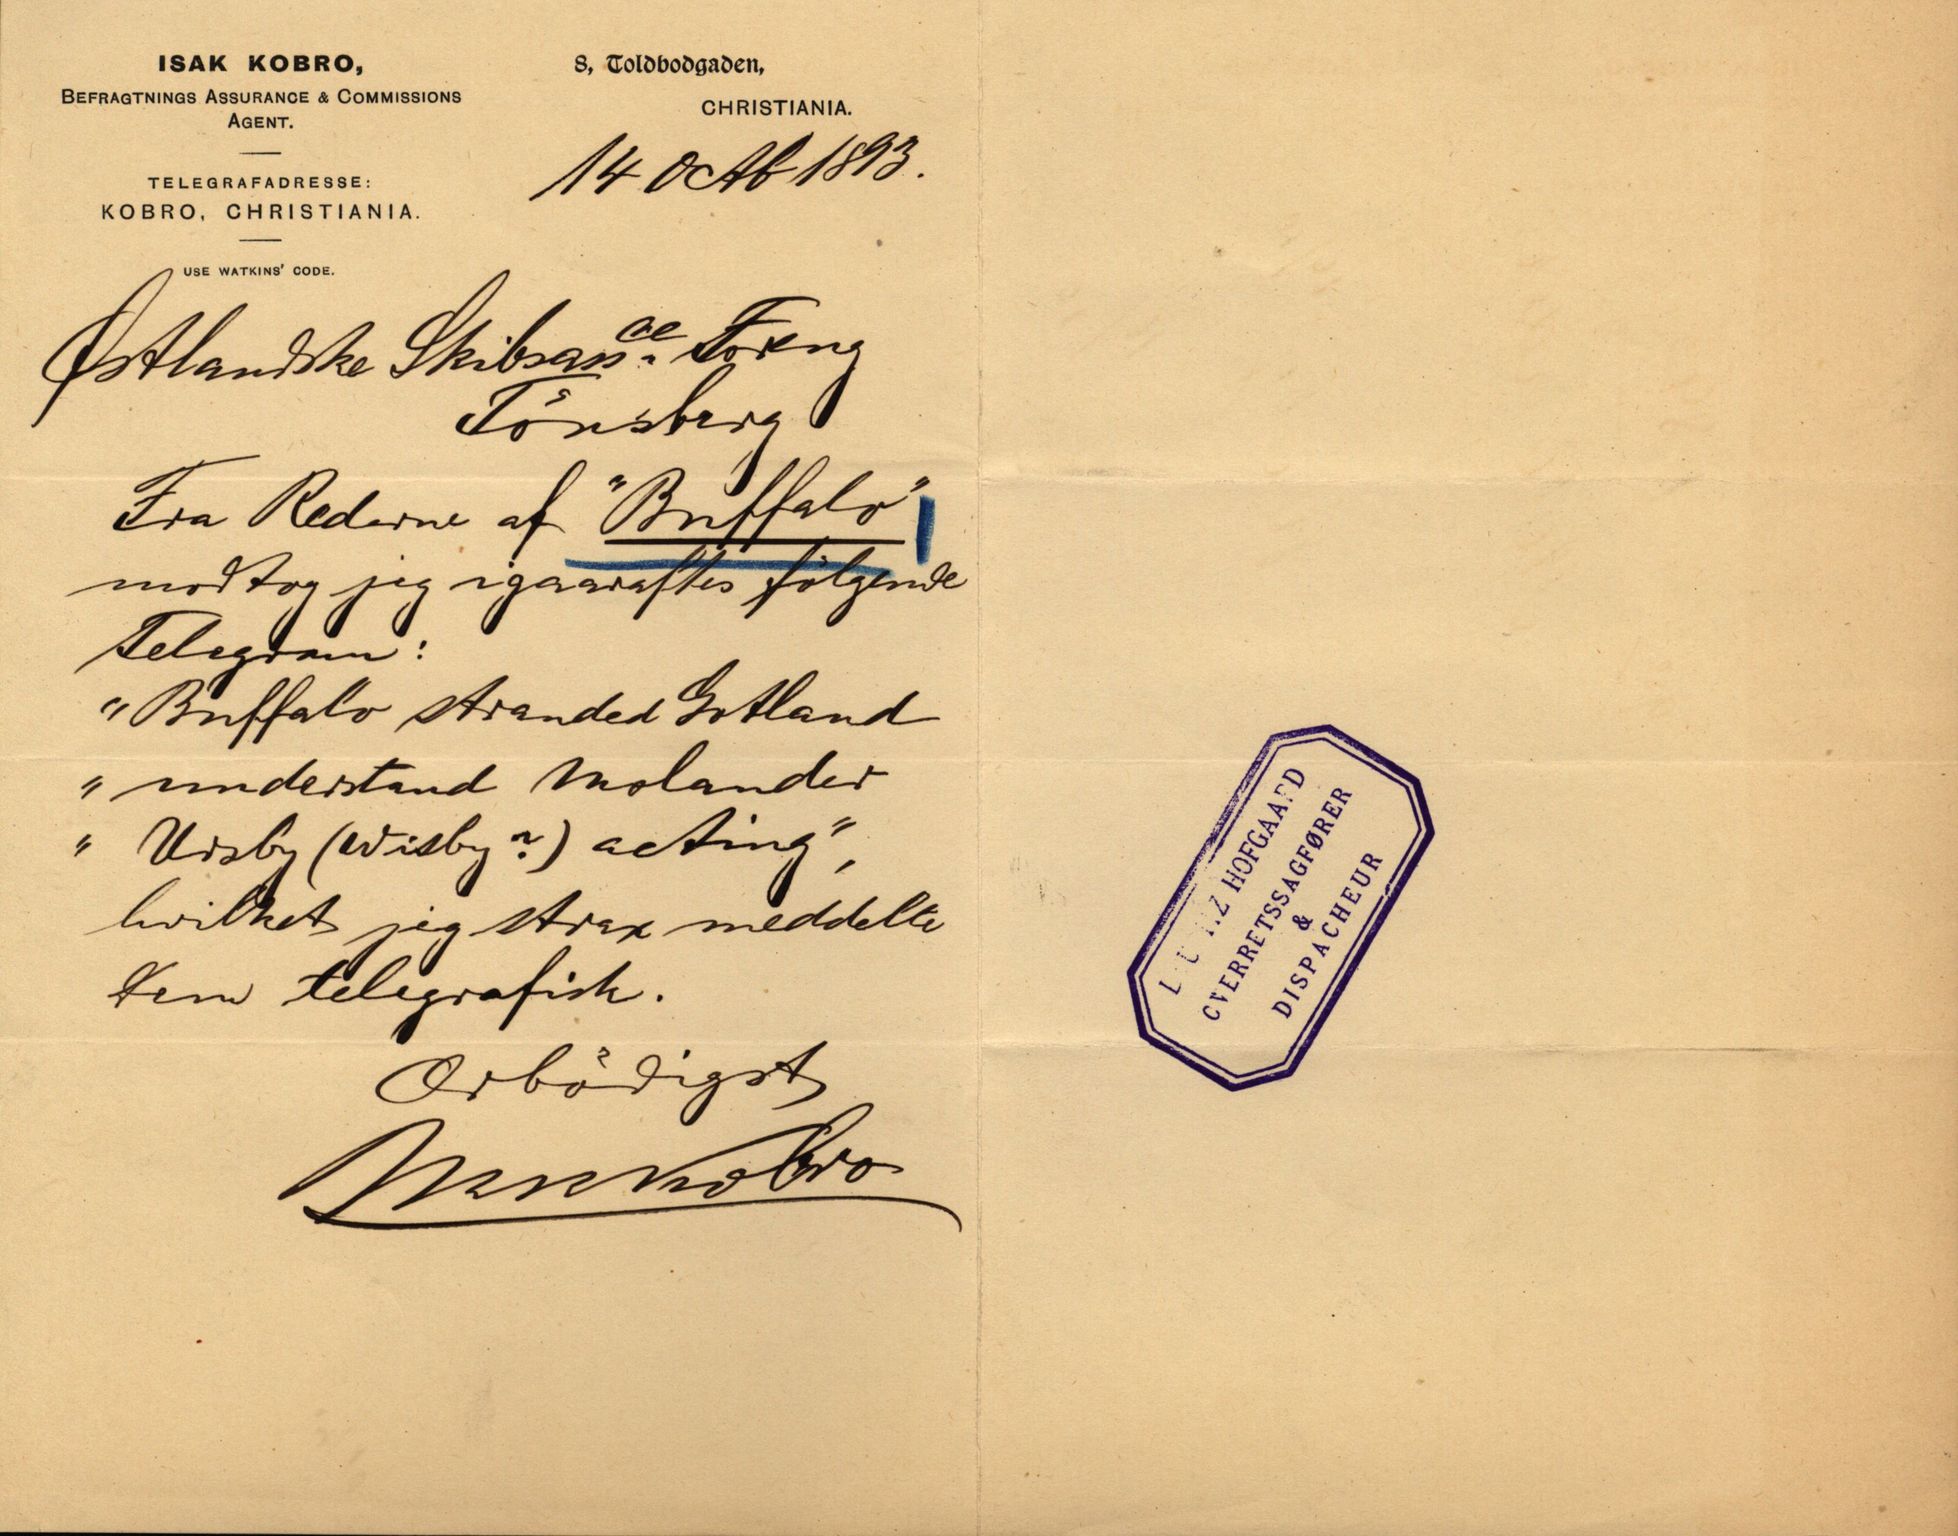 ISAK KOBRO,
BEFRAGTNINGS ASSURANCE & COMMISSIONS
AGENT.
TELEGRAFADRESSE:
KOBRO, CHRISTIANIA.
USE WATKINS' CODE.
8, Toldbodgaden,
CHRISTIANIA.
14 Octb 1893.
Østlandske Skibsassce Foreng
Tönsberg
Fra Rederne af "Buffalo"
modtog jeg igaaraftes fölgende
Telegram:
"Buffalo stranded Gotland
" understand Molander
" Ursby (Wisby?) acting",
hvilket jeg strax meddelte
Dem telegrafisk.
Ærbödigst
Isak Kobro
HOFGAARD
OVERRETSSAGFØRER
&
DISPACHEUR